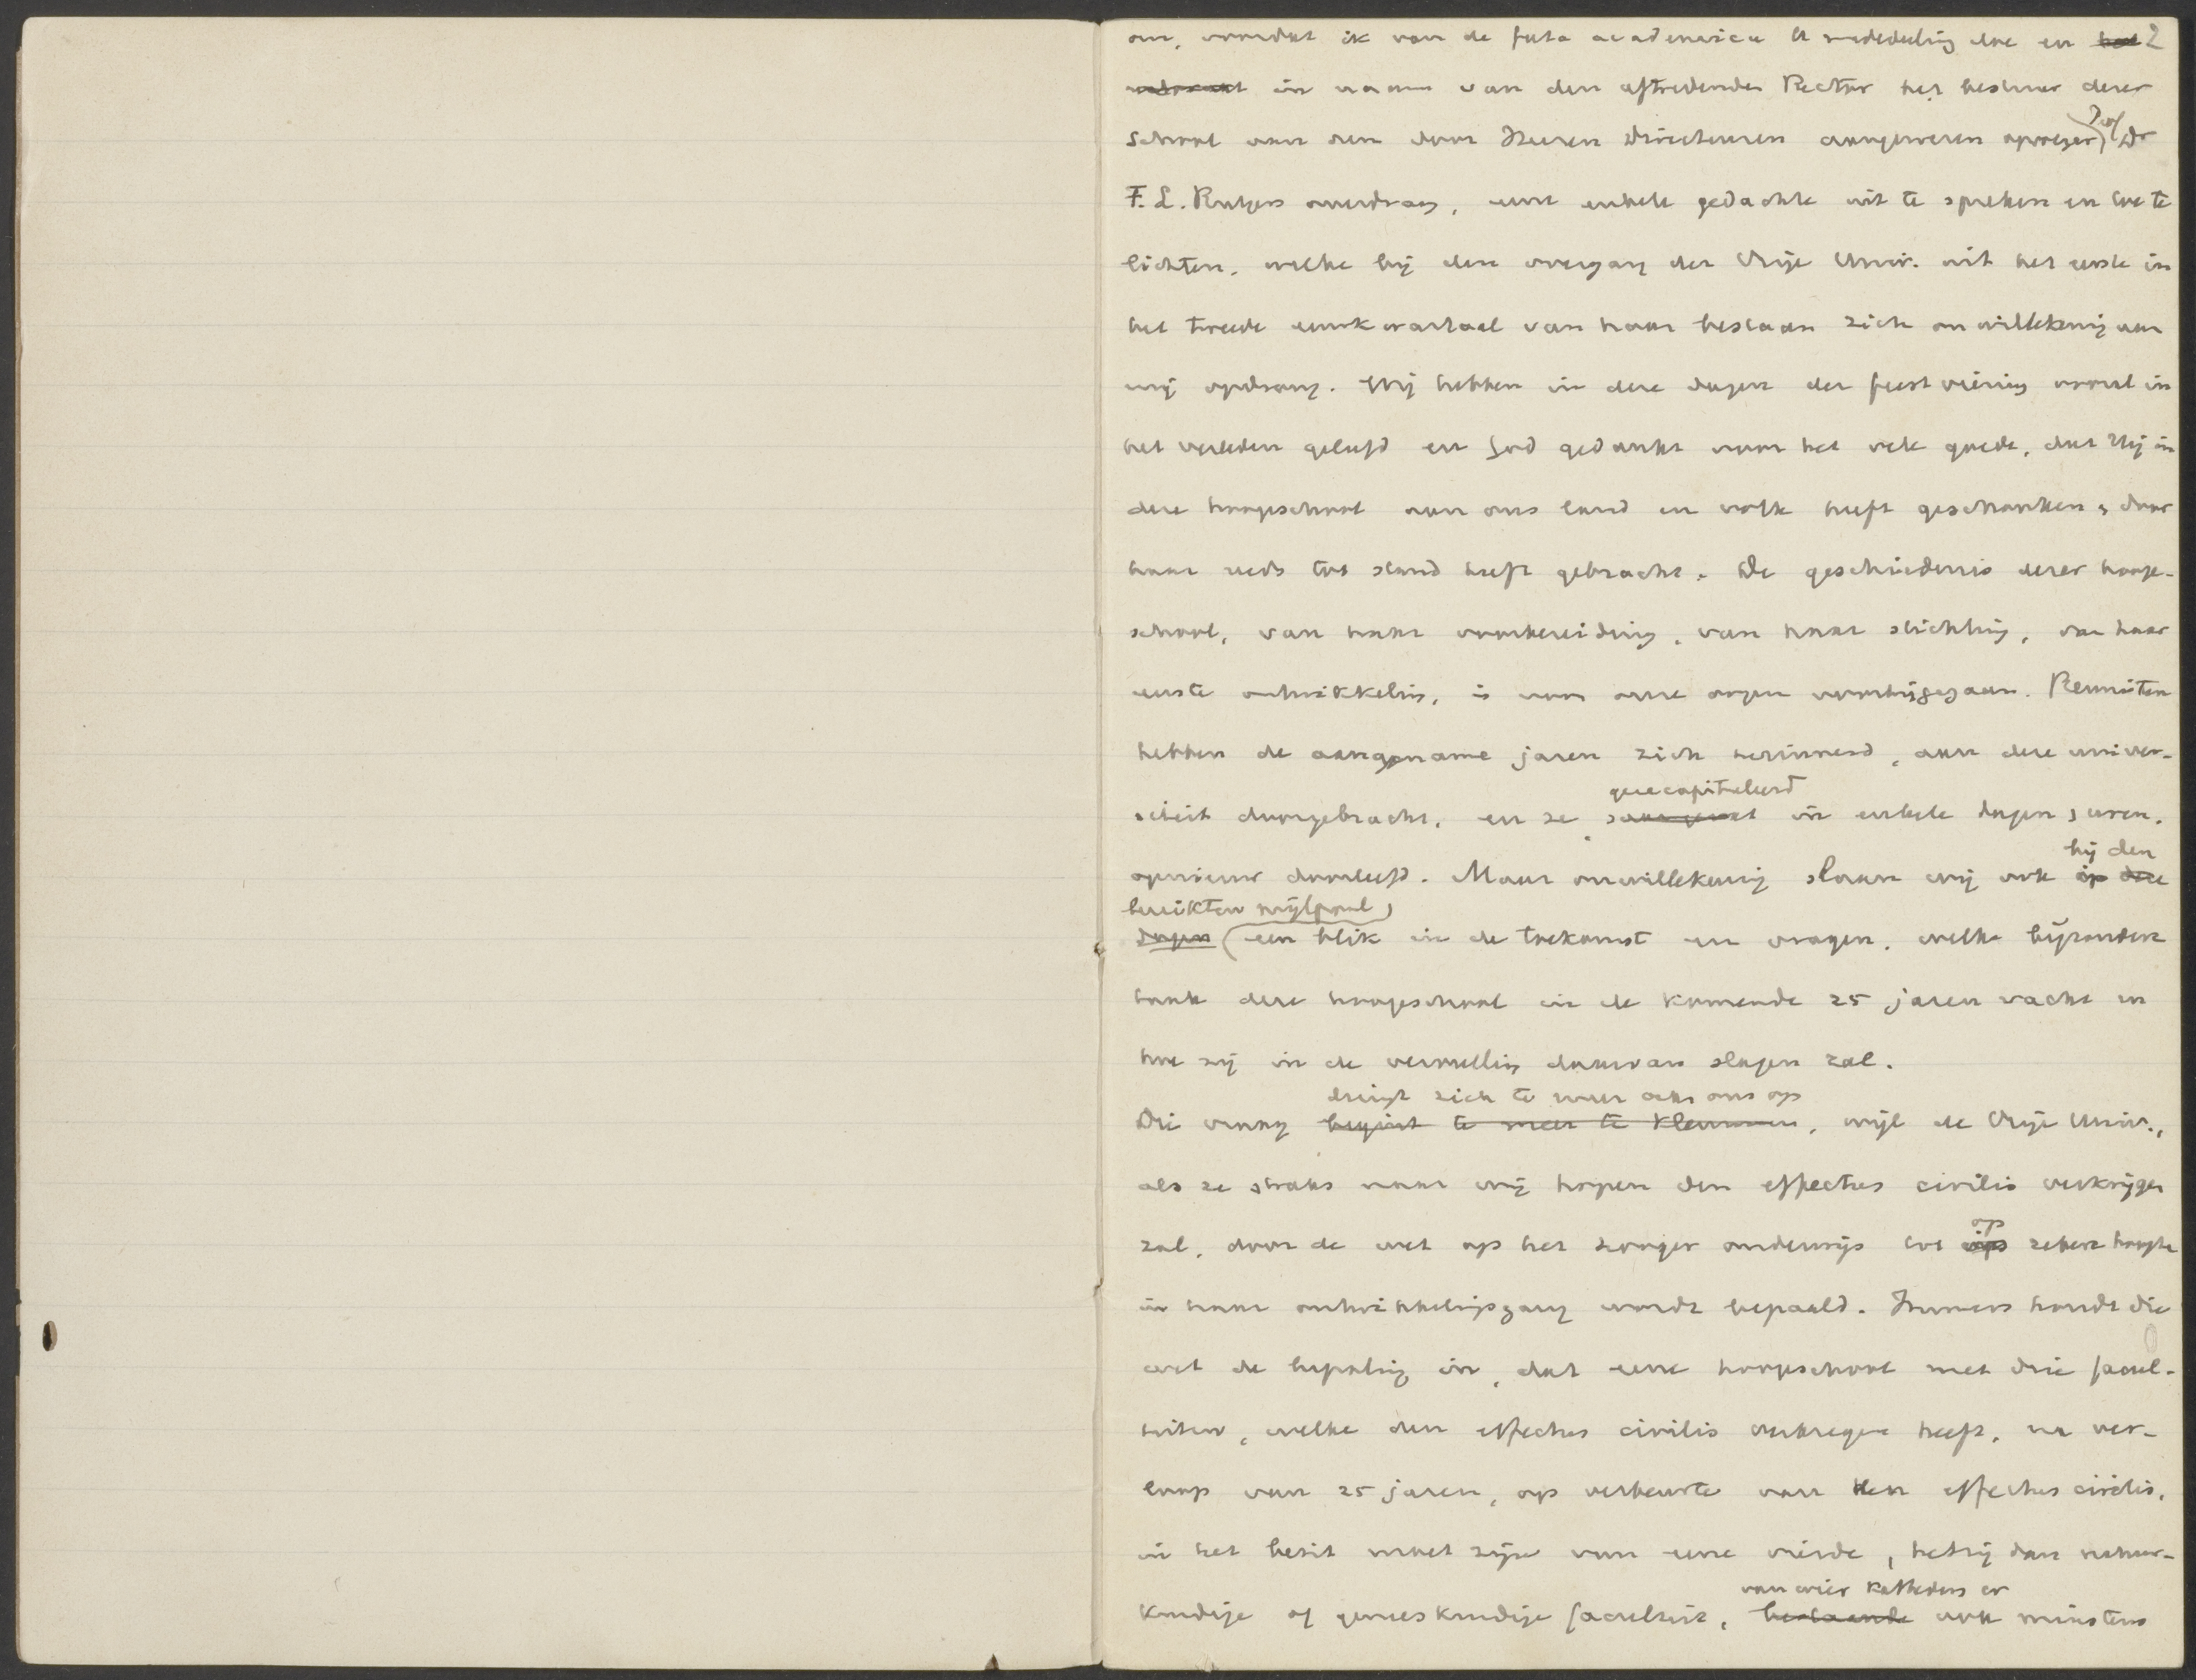 om, voordat ik van de fata academica U mededeling doe en ~~het~~ 2
in naam van den aftredenden Rector het bestuur dezer
school aan den door Heeren Directeuren aangewezen opvolger, Prof. Dr
F. L. Rutgers overdraag, eene enkele gedachte uit te spreken en toe te
lichten, welke bij den overgang der Vrije Univ. uit het eerste in
het tweede eeuwkwartaal van haar bestaan zich onwillekeurig aan
mij opdrong. Wij hebben in deze dagen der feestviering vooral in
het verleden geleefd en God gedankt voor het vele goede, dat Hij in
deze hoogeschool aan ons land en volk heeft geschonken, door
haar reeds tot stand heeft gebracht. De geschiedenis dezer hooge-
school, van haar voorbereiding, van haar stichting, van haar
eerste ontwikkeling, is voor onze oogen voorbijgegaan. Reunisten
hebben de aangename jaren zich herinnerd, aan deze univer-
siteit doorgebracht, en ze
gerecapituleerd
in enkele dagen, uren,
opnieuw doorleefd. Maar onwillekeurig slaan wij ook ~~op deze~~
bij den
bereikten mijlpaal,
~~dagen~~ (een blik in de toekomst en vragen, welke bijzondere
taak deze hoogeschool in de komende 25 jaren wacht en
hoe zij in de vervulling daarvan slagen zal.
dringt zich te meer aan ons op
Die vraag ~~begint te meer te klemmen~~, wijl de Vrije Univ.,
als ze straks naar wij hopen den effectus civilis verkrijgen
zal, door de wet op het hooger onderwijs tot
op
zekere hoogte
in haar ontwikkelingsgang wordt bepaald. Immers houdt die
wet de bepaling in, dat eene hoogeschool met drie facul-
teiten, welke den effectus civilis verkregen heeft, na ver-
loop van 25 jaren, op verbeurte van den effectus civilis,
in het bezit moet zijn van eene vierde, hetzij dan natuur-
van vier katheders en
kundige of geneeskundige faculteit, ~~bestaande~~ ook minstens